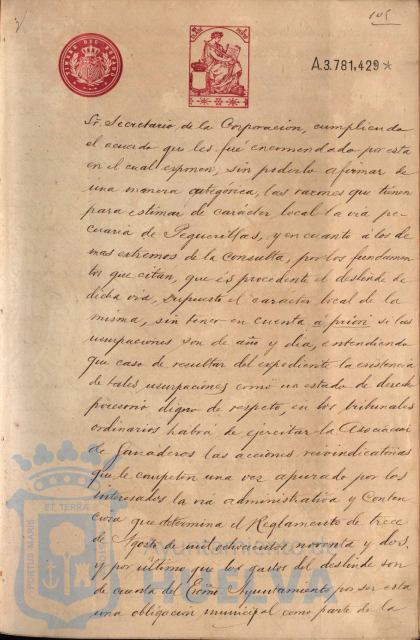 105
TIMBRE DEL ESTADO
A.3.781,429*
Sr. Secretario, de la Corporacion, cumpliendo
el acuerdo que les fué encomendado por esta
en el cual exponen, sin poderlo afirmar de
una manera categórica, las razones que tienen
para estimar de carácter local la via pe-
cuaria de Peguerillas, y en cuanto á los de
mas extremos de la Consulta, por los fundamen
tos que citan, que és procedente el deslinde de
dicha via, supuesto el carácter local de la
misma, sin tener en cuenta á priori si las
usurpaciones son de año y dia, entendiendo
que caso de resultar del expediente la existencia
de tales usurpaciones como un estado de derecho
posesorio digno de respeto, en los tribunales
ordinarios habrá de ejercitar la Asociacion
de Ganaderos las acciones reivindicatorias
que le competen una vez apurado por los
interesados la via administrativa y Conten
ciosa que determina el Reglamento de trece
de Agosto de mil ochocientos noventa y dos,
y por ultimo que los gastos del deslinde son
de cuenta del Excmo. Ayuntamiento por ser esta
una obligacion municipal como parte de la
PORTUS MARIS ET TERRAE
Ayuntamiento de
HUELVA